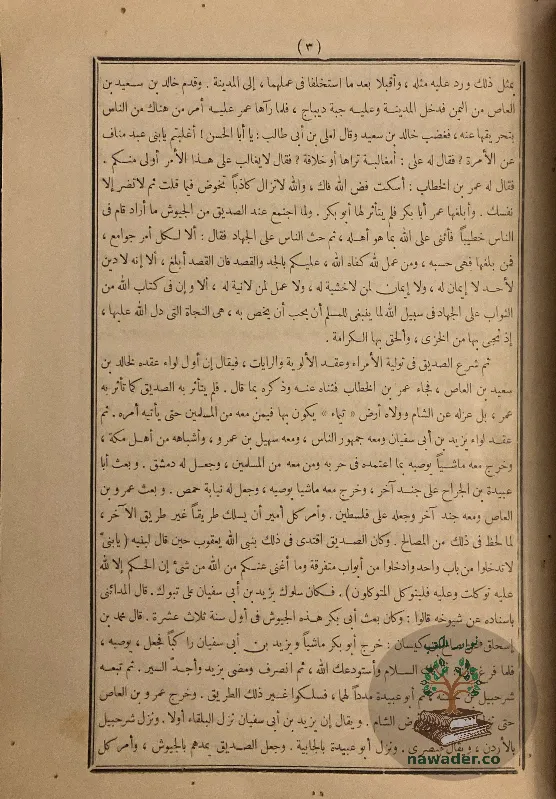 (٣)
بمثل ذلك ورد عليه مثله ، وأقبلا بعد ما استخلفا فى عملهما ، إلى المدينة . وقدم خالد بن سعيد بن
العاص من اليمن فدخل المدينة وعليه جبة ديباج ، فلما رآها عمر عليه أمر من هناك من الناس
بتحريقها عنه ، فغضب خالد بن سعيد وقال لعلى بن أبى طالب : يا أبا الحسن ! أغلبتم يابنى عبد مناف
عن الأمرة ؟ فقال له على : أمغالبة تراها أو خلافة ؟ فقال لايغالب على هذا الأمر أولى منكم .
فقال له عمر بن الخطاب : أسكت فض الله فاك ، والله لاتزال كاذباً تخوض فيما قلت ثم لاتضر إلا
نفسك . وأبلغها عمر أبا بكر فلم يتأثر لها أبو بكر . ولما اجتمع عند الصديق من الجيوش ما أراد قام فى
الناس خطيباً فأثنى على الله بما هو أهله ، ثم حث الناس على الجهاد فقال : ألا لكل أمر جوامع ،
فمن بلغها فهى حسبه ، ومن عمل لله كفاه الله ، عليكم بالجد والقصد فان القصد أبلغ ، ألا إنه لادين
لأحد لا إيمان له ، ولا إيمان لمن لاخشية له ، ولا عمل لمن لانية له ، ألا وإن فى كتاب الله من
الثواب على الجهاد فى سبيل الله لما ينبغى للمسلم أن يحب أن يخص به ، هى النجاة التى دل الله عليها ،
إذ نجى بها من الخزى ، وألحق بها الكرامة .
ثم شرع الصديق فى تولية الأمراء وعقد الألوية والرايات ، فيقال إن أول لواء عقده لخالد بن
سعيد بن العاص ، فجاء عمر بن الخطاب فثناه عنه وذكره بما قال . فلم يتأثر به الصديق كما تأثر به
عمر ، بل عزله عن الشام وولاه أرض « تيماء » يكون بها فيمن معه من المسلمين حتى يأتيه أمره . ثم
عقد لواء يزيد بن أبى سفيان ومعه جمهور الناس ، ومعه سهيل بن عمرو ، وأشباهه من أهل مكة ،
وخرج معه ماشياً يوصيه بما اعتمده فى حربه ومن معه من المسلمين ، وجعل له دمشق . وبعث أبا
عبيدة بن الجراح على جند آخر ، وخرج معه ماشيا يوصيه ، وجعل له نيابة حمص . وبعث عمرو بن
العاص ومعه جند آخر وجعله على فلسطين . وأمر كل أمير أن يسلك طريقاً غير طريق الآخر ،
لما لحظ فى ذلك من المصالح . وكان الصديق اقتدى فى ذلك بنبى الله يعقوب حين قال لبنيه ( يابنىَّ
لاتدخلوا من باب واحد وادخلوا من أبواب متفرقة وما أغنى عنكم من الله من شئ إن الحكم إلا لله
عليه توكلت وعليه فليتوكل المتوكلون ) . فكان سلوك يزيد بن أبى سفيان على تبوك . قال المدائنى
باسناده عن شيوخه قالوا : وكان بعث أبى بكر هذه الجيوش فى أول سنة ثلاث عشرة . قال محمد بن
إسحاق عن صالح بن كيسان : خرج أبو بكر ماشياً ويزيد بن أبى سفيان راكباً فجعل ، يوصيه ،
فلما فرغ السلام وأستودعك الله ، ثم انصرف ومضى يزيد وأجدَّ السير . ثم تبعه
شرحبيل بن أبو عبيدة مدداً لهما ، فسلكوا غير ذلك الطريق . وخرج عمرو بن العاص
حتى الشام . ويقال إن يزيد بن أبى سفيان نزل البلقاء أولا . ونزل شرحبيل
بالأردن ، ويقال ببصرى . ونزل أبو عبيدة بالجابية . وجعل الصديق يمدهم بالجيوش ، وأمر كل
نوادر الكتب
nawader.co